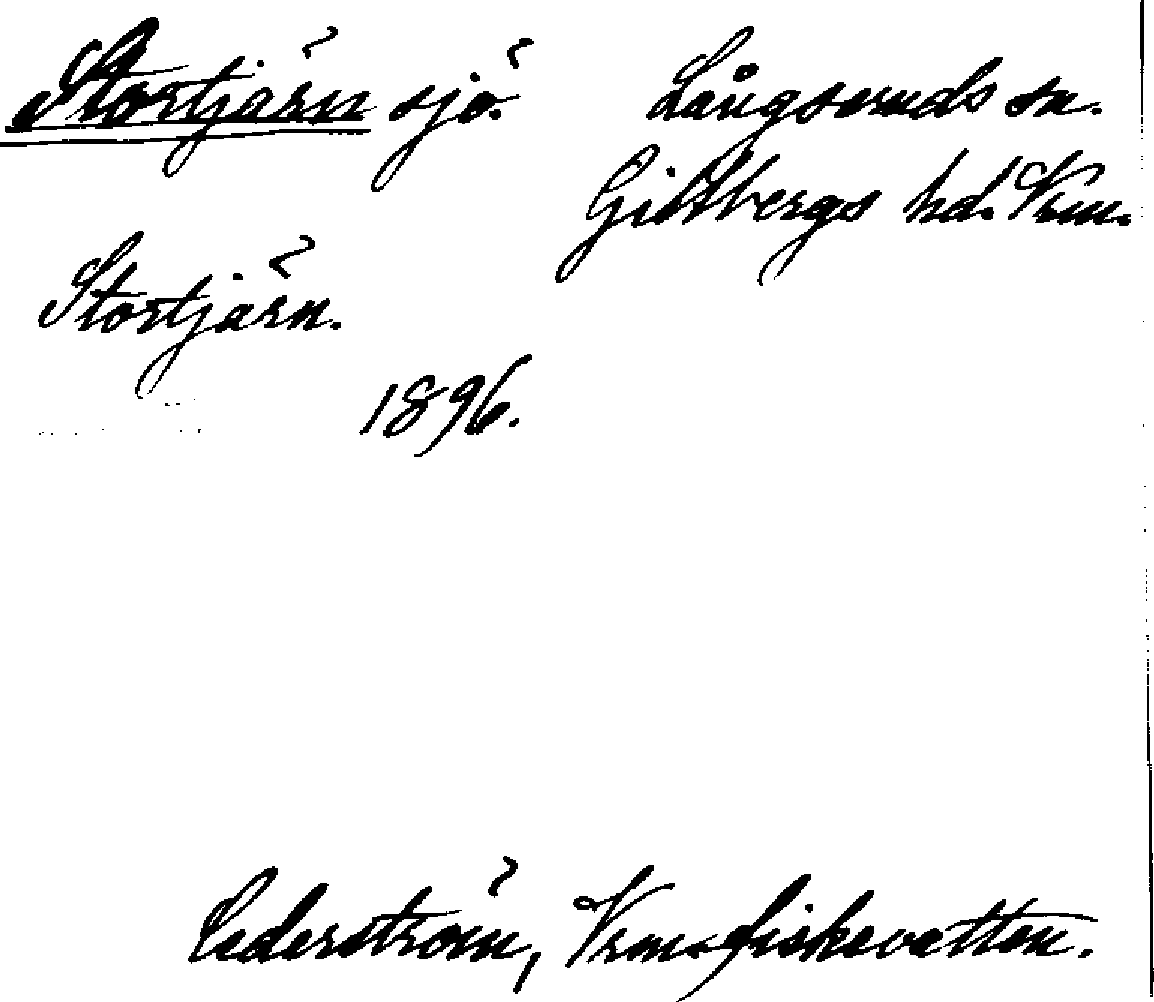 Stortjärn sjö. Långseruds sn.
Gillbergs hd. Vrm.
Stortjärn.
1896.
Cederström, Vrm. fiskevatten.